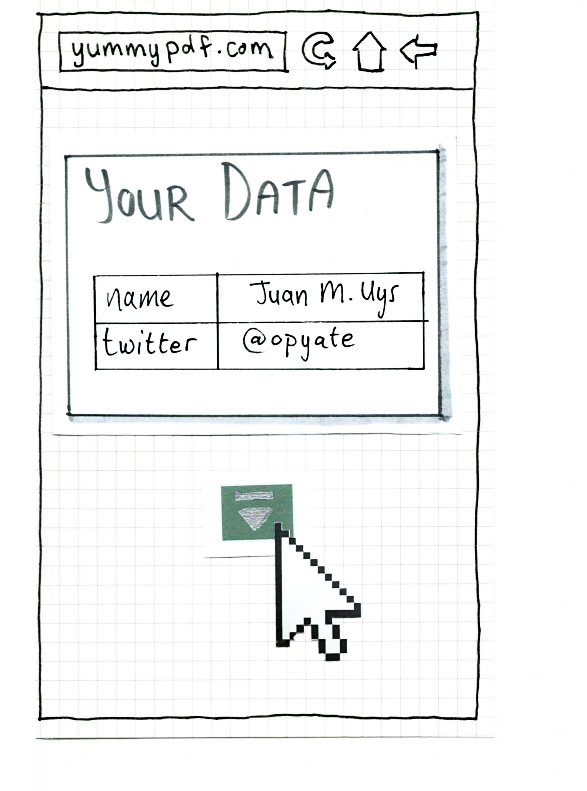 yummypdf.com
YOUR DATA
name Juan M. Uys
twitter @opyate